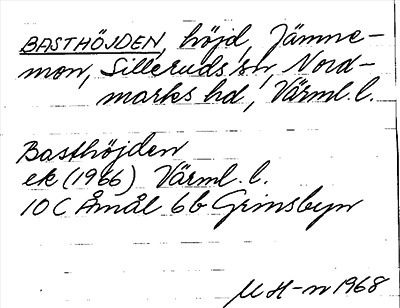 BASTHÖJDEN, höjd, Jämne-
mon, Silleruds sn, Nord-
marks hd, Värml. l.
Basthöjden
ek (1966) Värml. l.
10 C Åmål 6b Grinsbyn
M H-n 1968